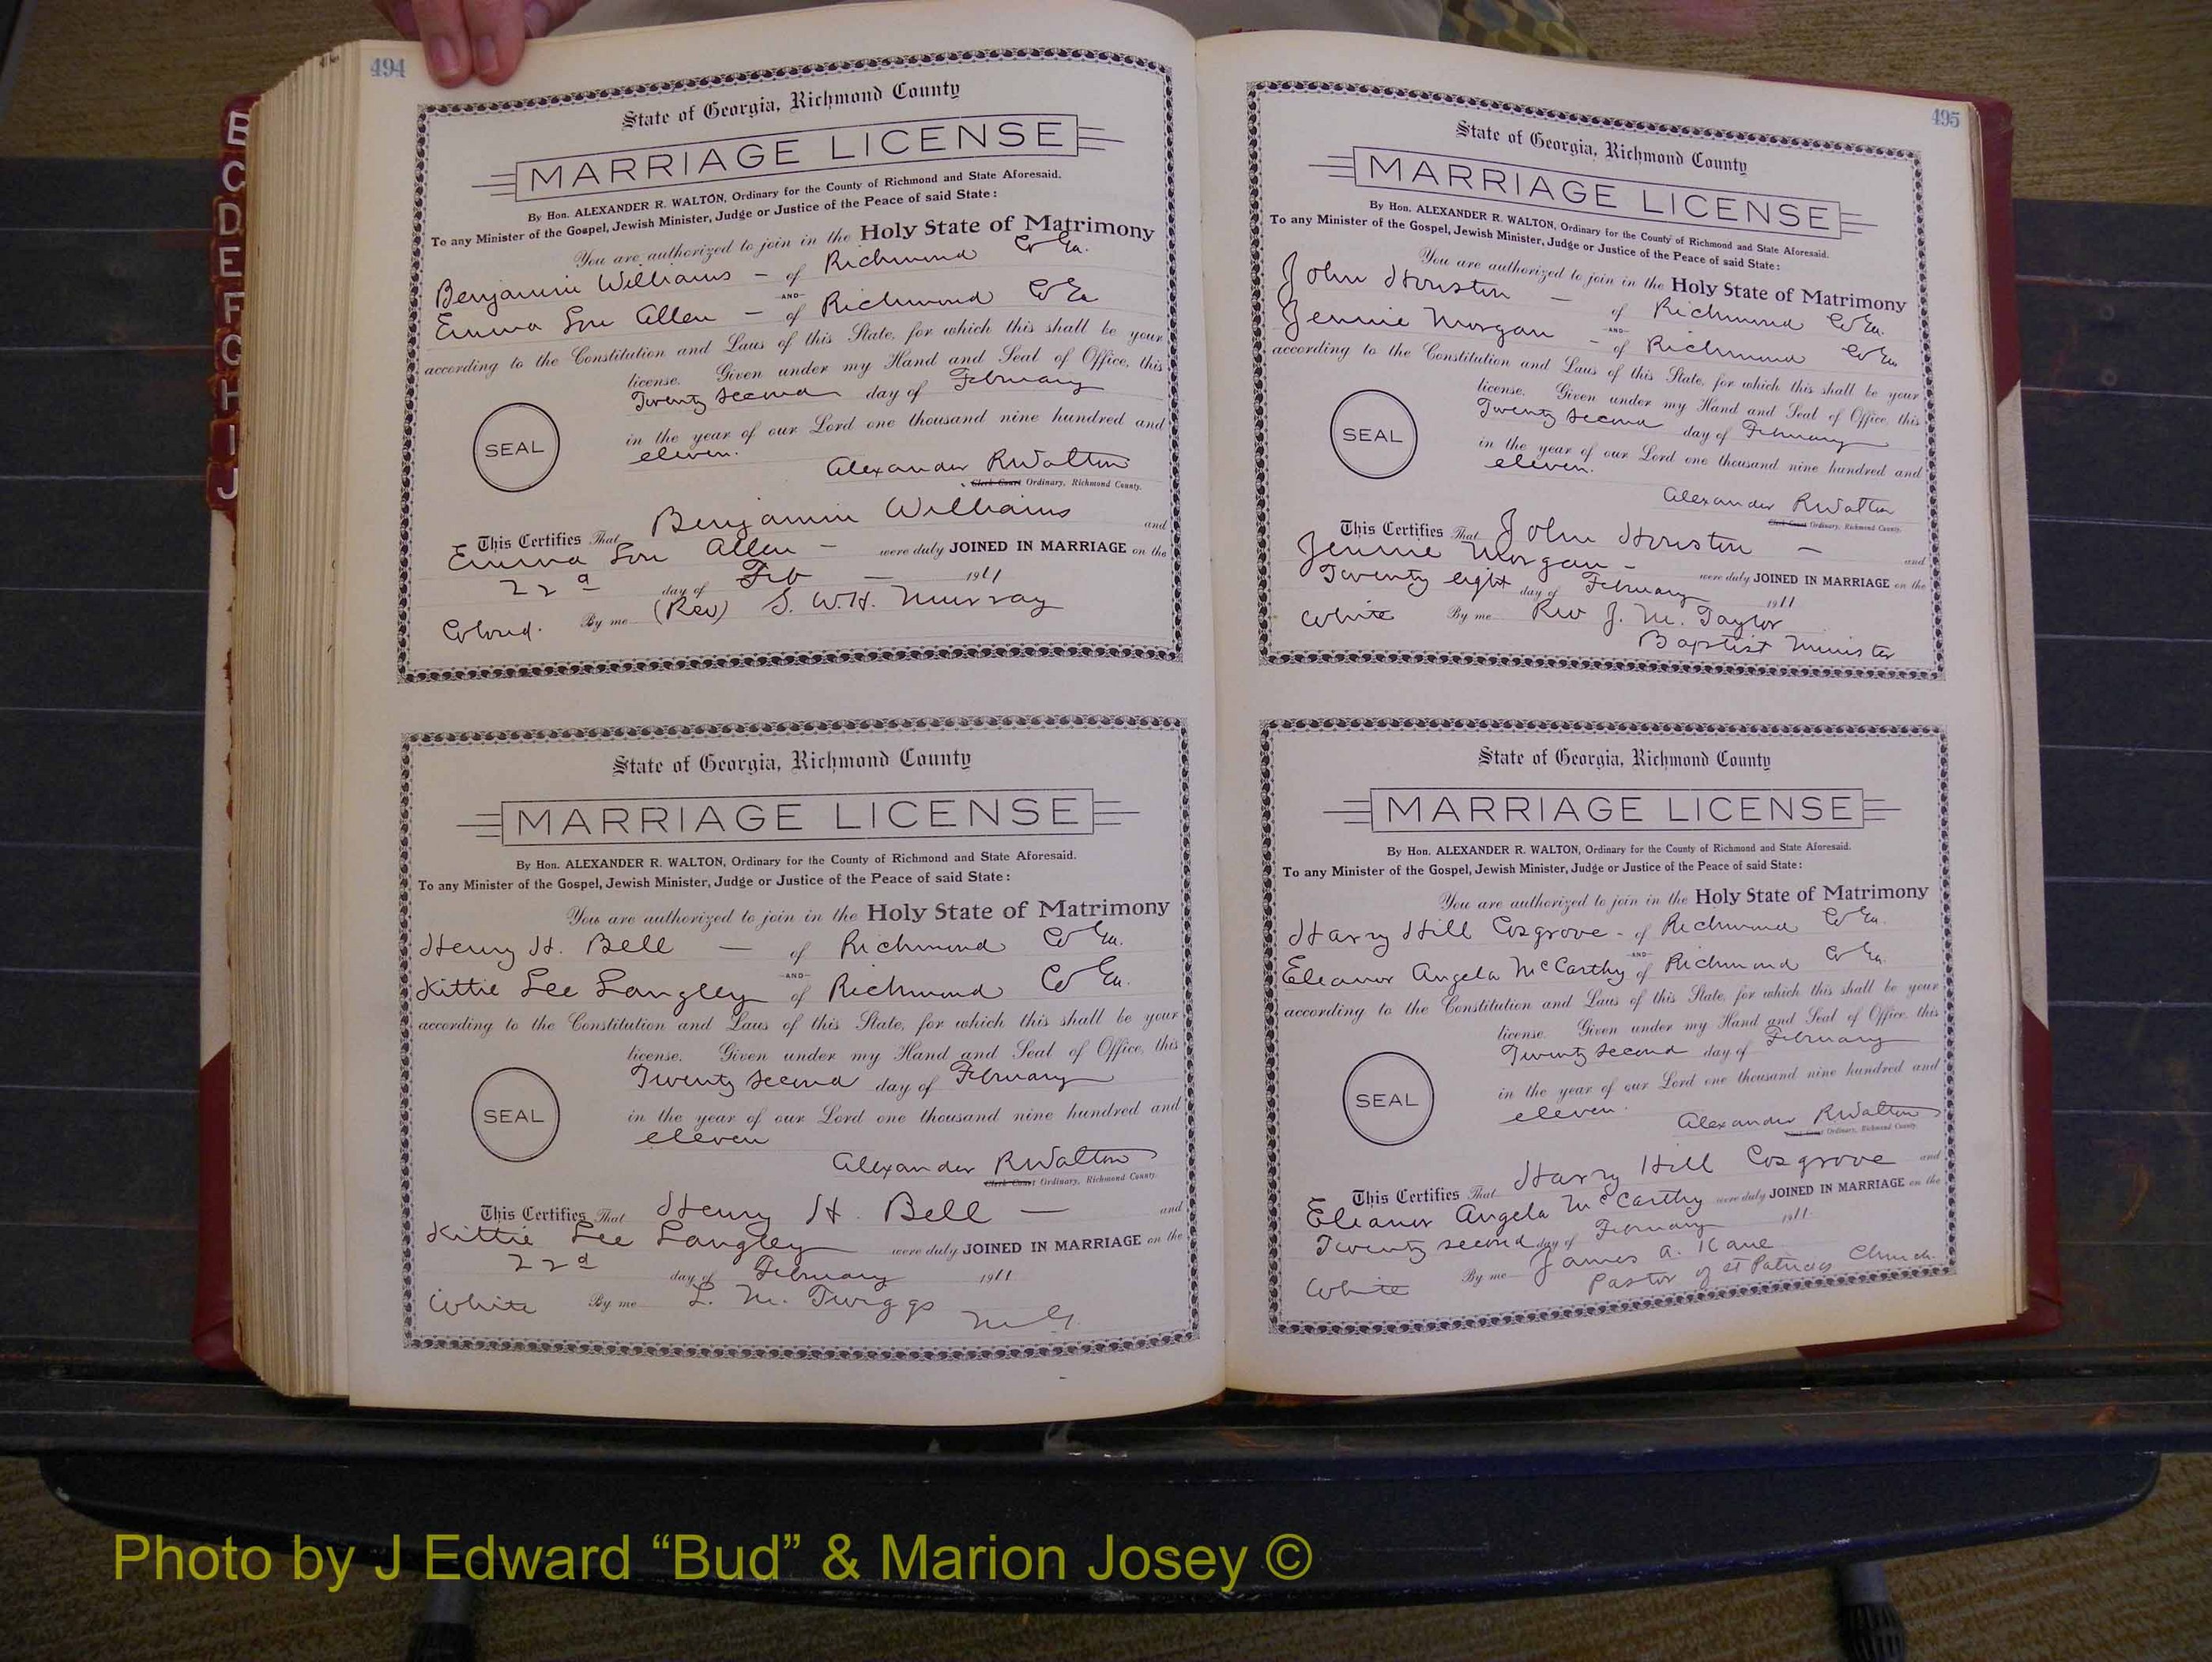 B
C
D
E
F
G
H
I
J
494
State of Georgia, Richmond County
MARRIAGE LICENSE
By Hon. ALEXANDER R. WALTON, Ordinary for the County of Richmond and State Aforesaid.
To any Minister of the Gospel, Jewish Minister, Judge or Justice of the Peace of said State:
You are authorized to join in the Holy State of Matrimony
Benjamin Williams – of Richmond Co Ga.
-AND-
Emma Lou Allen – of Richmond Co Ga
according to the Constitution and Laws of this State, for which this shall be your
license. Given under my Hand and Seal of Office, this
Twenty second day of February
in the year of our Lord one thousand nine hundred and
eleven.
SEAL
Alexander R Walton
Clerk Court Ordinary, Richmond County.
This Certifies That Benjamin Williams and
Emma Lou Allen – were duly JOINED IN MARRIAGE on the
22d day of Feb – 1911
Colored. By me (Rev) S. W. H. Murray
State of Georgia, Richmond County
MARRIAGE LICENSE
By Hon. ALEXANDER R. WALTON, Ordinary for the County of Richmond and State Aforesaid.
To any Minister of the Gospel, Jewish Minister, Judge or Justice of the Peace of said State:
You are authorized to join in the Holy State of Matrimony
Henry H. Bell – of Richmond Co Ga.
-AND-
Kittie Lee Langley of Richmond Co Ga.
according to the Constitution and Laws of this State, for which this shall be your
license. Given under my Hand and Seal of Office, this
Twenty second day of February
in the year of our Lord one thousand nine hundred and
eleven
SEAL
Alexander R Walton
Clerk Court Ordinary, Richmond County.
This Certifies That Henry H. Bell – and
Kittie Lee Langley were duly JOINED IN MARRIAGE on the
22d day of February 1911
White By me L. M. Twiggs M.G.
495
State of Georgia, Richmond County
MARRIAGE LICENSE
By Hon. ALEXANDER R. WALTON, Ordinary for the County of Richmond and State Aforesaid.
To any Minister of the Gospel, Jewish Minister, Judge or Justice of the Peace of said State:
You are authorized to join in the Holy State of Matrimony
John Houston – of Richmond Co Ga.
-AND-
Jennie Morgan – of Richmond Co Ga
according to the Constitution and Laws of this State, for which this shall be your
license. Given under my Hand and Seal of Office, this
Twenty second day of February
in the year of our Lord one thousand nine hundred and
eleven.
SEAL
Alexander R Walton
Clerk Court Ordinary, Richmond County.
This Certifies That John Houston – and
Jennie Morgan – were duly JOINED IN MARRIAGE on the
Twenty eight day of February 1911
White By me Rev J. M. Taylor
Baptist Minister
State of Georgia, Richmond County
MARRIAGE LICENSE
By Hon. ALEXANDER R. WALTON, Ordinary for the County of Richmond and State Aforesaid.
To any Minister of the Gospel, Jewish Minister, Judge or Justice of the Peace of said State:
You are authorized to join in the Holy State of Matrimony
Harry Hill Cosgrove - of Richmond Co Ga.
-AND-
Eleanor Angela McCarthy of Richmond Co Ga.
according to the Constitution and Laws of this State, for which this shall be your
license. Given under my Hand and Seal of Office, this
Twenty second day of February
in the year of our Lord one thousand nine hundred and
eleven.
SEAL
Alexander R Walton
Clerk Court Ordinary, Richmond County.
This Certifies That Harry Hill Cosgrove and
Eleanor Angela McCarthy were duly JOINED IN MARRIAGE on the
Twenty second day of February 1911
White By me James A. Kane
Pastor of St Patricks Church.
Photo by J Edward “Bud” & Marion Josey ©